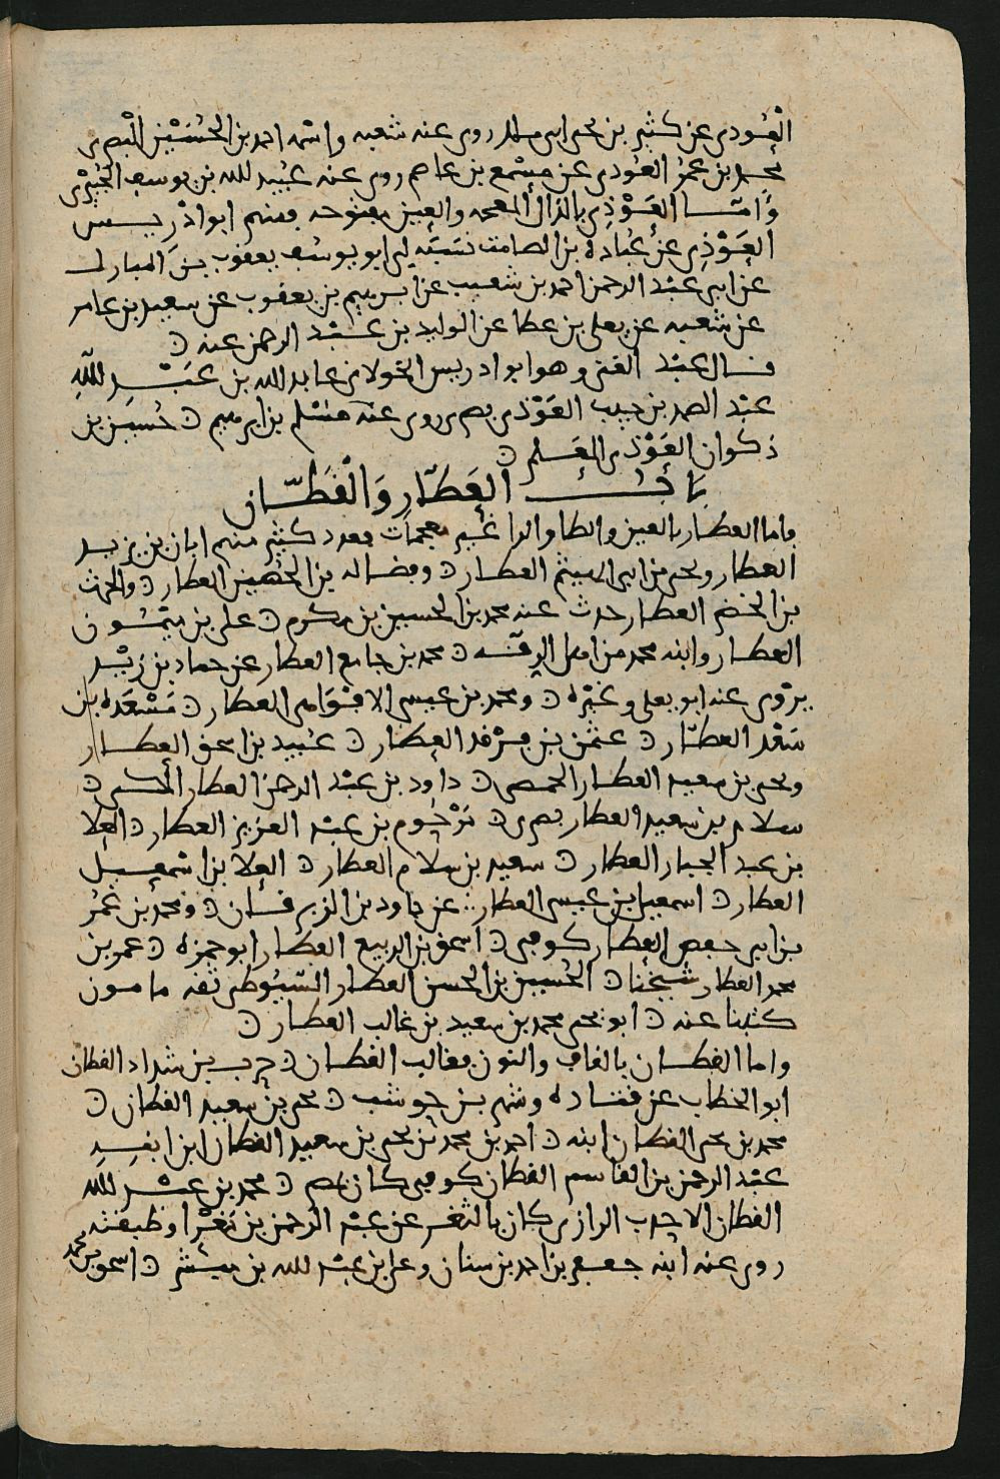 العُودي عن كثير بن يحيى روى عنه شعبه واسمه احمد بن الحُسَيْن البصرى
محمد بن عمرُ العُودى عن مِسْمع بن عاصم روى عنه عبيد الله بن يوسف الجُبيْرى
وَامّا العَوْذِى بالذال المعجمه والعين مفتوحه فمنهم ابو ادْريس
العَوْذِى عن عُبادة بن الصامت نسَبَه لى ابو يوسُف يعقوب بن المبارك
عن ابى عبْد الرحمن احمد بن شعيب عن ابرهيم بن يعقوب عن سعيد بن عامر
عن شعبه عن يعلى بن عطا عن الوليد بن عبْد الرحمن عنه ۞
قال عبْد الغنى وهو ابو ادريس الخولانى عايذ الله بن عَبْد اللّٰه
عبْد الصمد بن حبيب العَوْذى بصرى روى عنه مُسْلم بن ابرهيم ۞ حُسَين بن
ذكوان العَوْذى المعَلم ۞
بَابُ العَطّار وَالْقَطّان
واما العطار بالعين والطا والرا غير معجمات فعدد كثير منهم ابان بن يزيد
العطار ويحيى بن ابى الهيثم العطار ۞ وفضاله بن الحُصَين العطار ۞ والحرث
بن الخضر العطار حدث عنه محمد بن الحسين بن مكرم ۞ على بن ميْمُون
العطار وابنه محمد من اهل الرقّه ۞ محمد بن جامع العطار عن حماد بن زيْد
يرْوى عنه ابو يعلى وغيْره ۞ ومحمد بن عيسى الافْوَاهى العطار ۞ مَسْعَده بن
سَعْد العطّار ۞ عثمن بن فرْقد العطار ۞ عُبيد بن اسحق العطار
ويحيى بن سعيد العطار الحمصى ۞ داود بن عبْد الرحمن العطار المكى ۞
سلام بن سعيد العطار بصرى ۞ مَرْحُوم بن عبْد العزيز العطار ۞ العلا
بن عبد الجبار العطار ۞ سعيد بن سلام العطار ۞ العلا بن اسْمعيل
العطار ۞ اسمعيل بن عيسى العطار عن داود بن الزبرقان ۞ ومحمد بن عُمَر
بن ابى حفص العطار كوفى ۞ اسحق بن الربيع العطار ابو حمزه ۞ عمر بن
محمد العطار شيخنا ۞ الحُسين بن الحسن العطار السّيُوطى ثقه مامون
كتبنا عنه ۞ ابو يحيى محمد بن سعيد بن غالب العطار ۞
واما القطان بالقاف والنون فغالب القطان ۞ حرب بن شداد القطان
ابو الخطاب عن قتاده وشهر بن حوشب ۞ يحيى بن سعيد القطان ۞
محمد بن يحيى القطان ابنه ۞ احمد بن محمد بن يحيى بن سعيد القطان ابن ابنه
عبْد الرحمن بن القاسم القطان كوفى كان بمصر ۞ محمد بن عبْد الله
القطان الاحدب الرازى كان بالثغر عن عبْد الرحمن بن مَغْرا وطبقته
روى عنه ابنه جعفر بن احمد بن سنان وعلى بن عبْد الله بن مُبشّر ۞ اسحق بن محمد